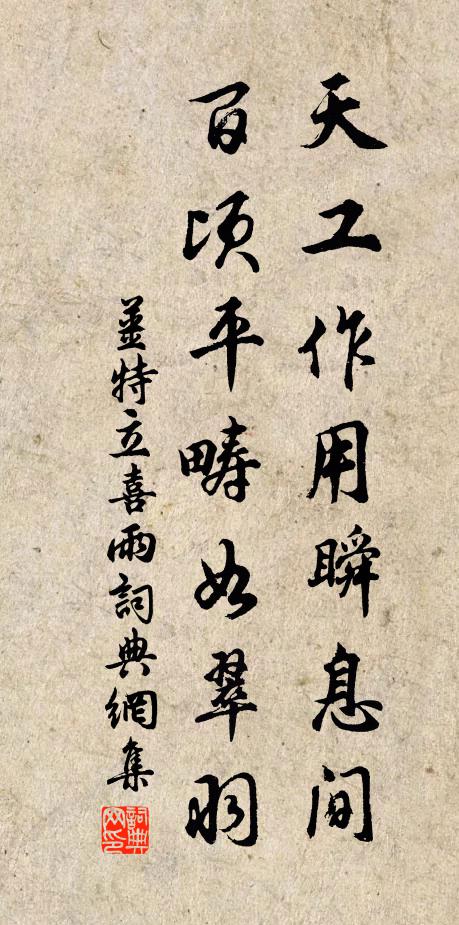 天工作用瞬息間
百頃平疇如翠羽
姜特立喜雨詞典網集
詞典網印